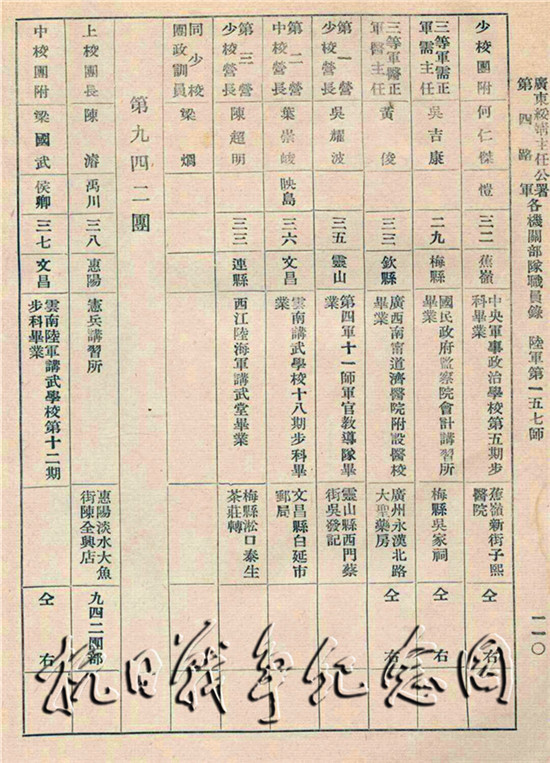 廣東綏靖主任公署
第四路軍
各機關部隊職員錄 陸軍第一五七師
一一〇
少校團附 何仁傑 愷 三二 蕉嶺 中央軍事政治學校第五期步科畢業 蕉嶺新街子熙醫院 仝右
三等軍需正軍需主任 吳吉康 二九 梅縣 國民政府監察院會計講習所畢業 梅縣吳家祠 仝右
三等軍醫正軍醫主任 黃俊 三三 欽縣 廣西南甯道濟醫院附設醫校畢業 廣州永漢北路大聖藥房 仝右
第一營少校營長 吳耀波 三五 靈山 第四軍十一師軍官教導隊畢業 靈山縣西門蔡街吳發記
第二營中校營長 葉崇峻 映島 三六 文昌 雲南講武學校十八期步科畢業 文昌縣白延市郵局
第三營少校營長 陳超明 三三 連縣 西江陸海軍講武堂畢業 梅縣淞口泰生茶莊轉
同少校團政訓員 梁燗
第九四二團
上校團長 陳濬 禹川 三八 惠陽 憲兵講習所 惠陽淡水大魚街陳全興店 九四二團部
中校團附 梁國武 侯卿 三七 文昌 雲南陸軍講武學校第十二期步科畢業 仝右
抗日戰爭紀念網